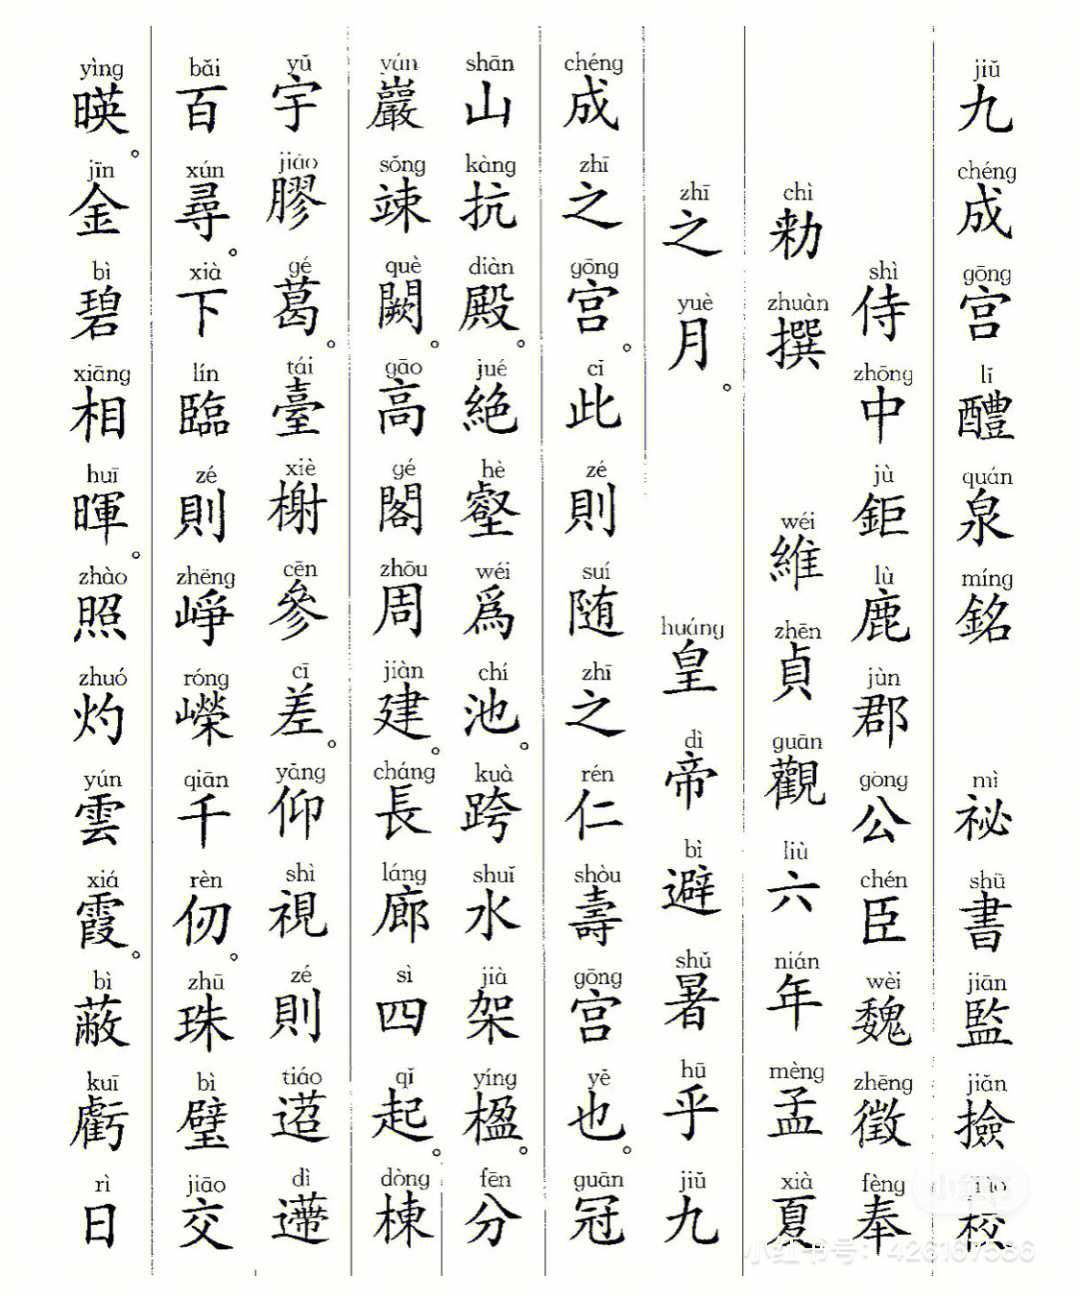 jiǔ 九 chéng 成 gōng 宫 lǐ 醴 quán 泉 míng 銘 mì 祕 shū 書 jiān 監 jiǎn 撿 校
shì 侍 zhōng 中 jù 鉅 lù 鹿 jùn 郡 gòng 公 chén 臣 wèi 魏 zhēng 徵 fèng 奉
chì 勑 zhuàn 撰 wéi 維 zhēn 貞 guān 觀 liù 六 nián 年 mèng 孟 xià 夏
zhī 之 yuè 月。 huáng 皇 dì 帝 bì 避 shǔ 暑 hū 乎 jiǔ 九
chéng 成 zhī 之 gōng 宫。 cǐ 此 zé 則 suí 随 zhī 之 rén 仁 shòu 壽 gōng 宫 yě 也。 guān 冠
shān 山 kàng 抗 diàn 殿。 jué 絶 hè 壑 wéi 爲 chí 池。 kuà 跨 shuǐ 水 jià 架 yíng 楹。 fēn 分
yún 巖 sǒng 竦 què 闕。 gāo 高 gé 閣 zhōu 周 jiàn 建。 cháng 長 láng 廊 sì 四 qǐ 起。 dòng 棟
yǔ 宇 jiāo 膠 gé 葛。 tái 臺 xiè 榭 cēn 參 cī 差。 yǎng 仰 shì 視 zé 則 tiáo 迢 dì 遰
bǎi 百 xún 尋。 xià 下 lín 臨 zé 則 zhēng 崢 róng 嶸 qiān 千 rèn 仞。 zhū 珠 bì 璧 jiāo 交
yìng 暎。 jīn 金 bì 碧 xiāng 相 huī 暉。 zhào 照 zhuó 灼 yún 雲 xiá 霞。 bì 蔽 kuī 虧 rì 日
小红书
小红书号：426167556